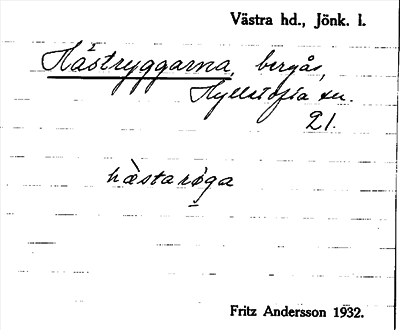 Västra hd., Jönk. l.
Hästryggarna, bergås,
Hylletofta sn.
21.
hæ̀starøga
Fritz Andersson 1932.